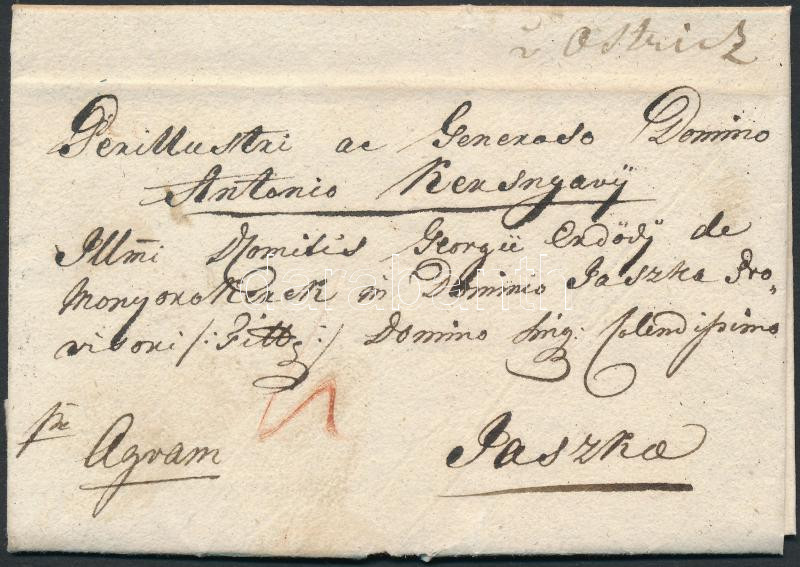 v Ostricz
Perillustri ac Generoso Domino
Antonio Kersnyavÿ
Illm̃i Comitis Georgii Erdödÿ de
Monyorokerek in Dominio Jaszka Pro-
visori /: Titt :/ Domino Sing: Colendissimo
pr
Agram
Jaszka
darabanth